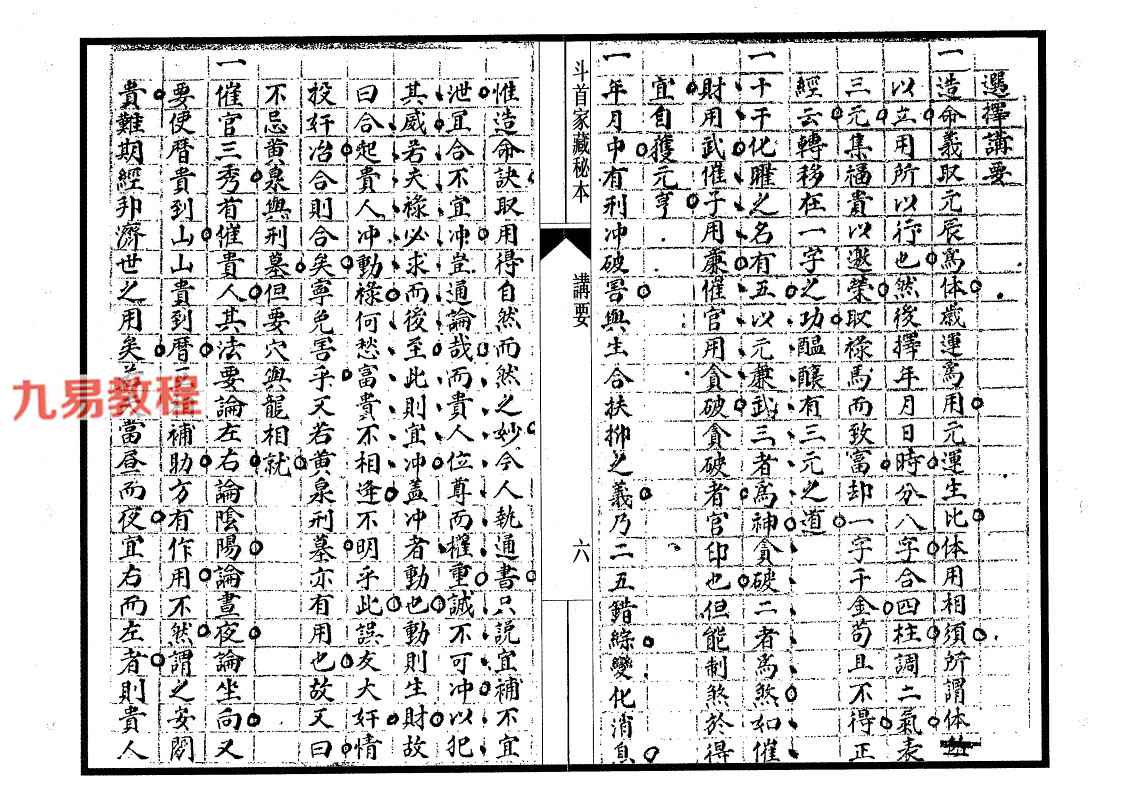 選擇講要
一造命義取元辰爲体歲運爲用元運生比体用相須所謂体
以立用所以行也然後擇年月日時分八字合四柱調二氣表
三元集福貴以邀榮取祿馬而致富却一字千金苟且不得正
經云轉移在一字之功醞釀有三元之道
一十干化曜之名有五以元蔗武三者爲神貪破二者爲煞如催
財用武催子用蔗催官用貪破貪破者官印也但能制煞於得
宜自獲元亨
一年月中有刑冲破害與生合扶抑之義乃二五錯綜變化消息
斗首家藏秘本
講要
六
惟造命訣取用得自然而然之妙今人執通書只說宜補不宜
泄宜合不宜冲豈通論哉而貴人位尊而權重誠不可冲以犯
其威若夫祿必求而後至此則宜冲盖冲者動也動則生財故
曰合起貴人冲動祿何愁富貴不相逢不明乎此誤友大奸情
投奸冶合則合矣寧免害乎又若黃泉刑墓亦有用也故又曰
不忌黃泉與刑墓但要穴與龍相就
一催官三秀有催貴人其法要論左右論陰陽論晝夜論坐向又
要使曆貴到山山貴到曆補助方有作用不然謂之安閑
貴難期經邦濟世之用矣當昼而夜宜右而左者則貴人
九易教程